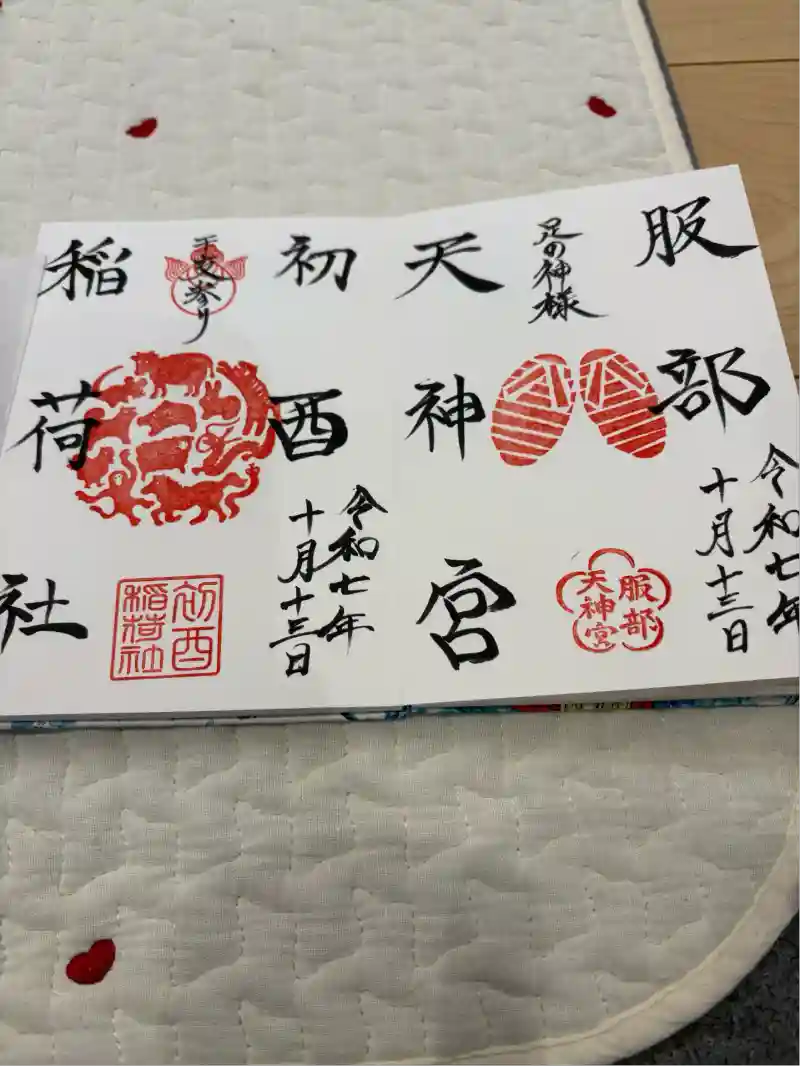 服部
天神宮
足の神様
令和七年
十月十三日
服部
天神宮
初酉
稲荷社
干支参り
令和七年
十月十三日
初酉
稲荷社